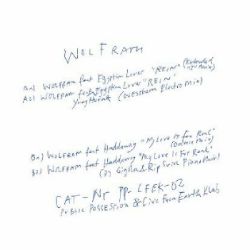 WOLFRAM
A1) WOLFRAM feat Egyptian Lover "REIN" (Extended
A2) WOLFRAM feat Egyptian Lover "REIN"
Yung Hurak (Westbam Electro Mix)
B1) WOLFRAM feat Haddaway "My Love Is For Real"
B2) WOLFRAM feat Haddaway "My Love Is For Real"
(DJ Gigola & Rip Swirl Piano Mix)
CAT-Nr PP-LFEK-02
PUBLIC POSSESSION & Live From Earth Klub